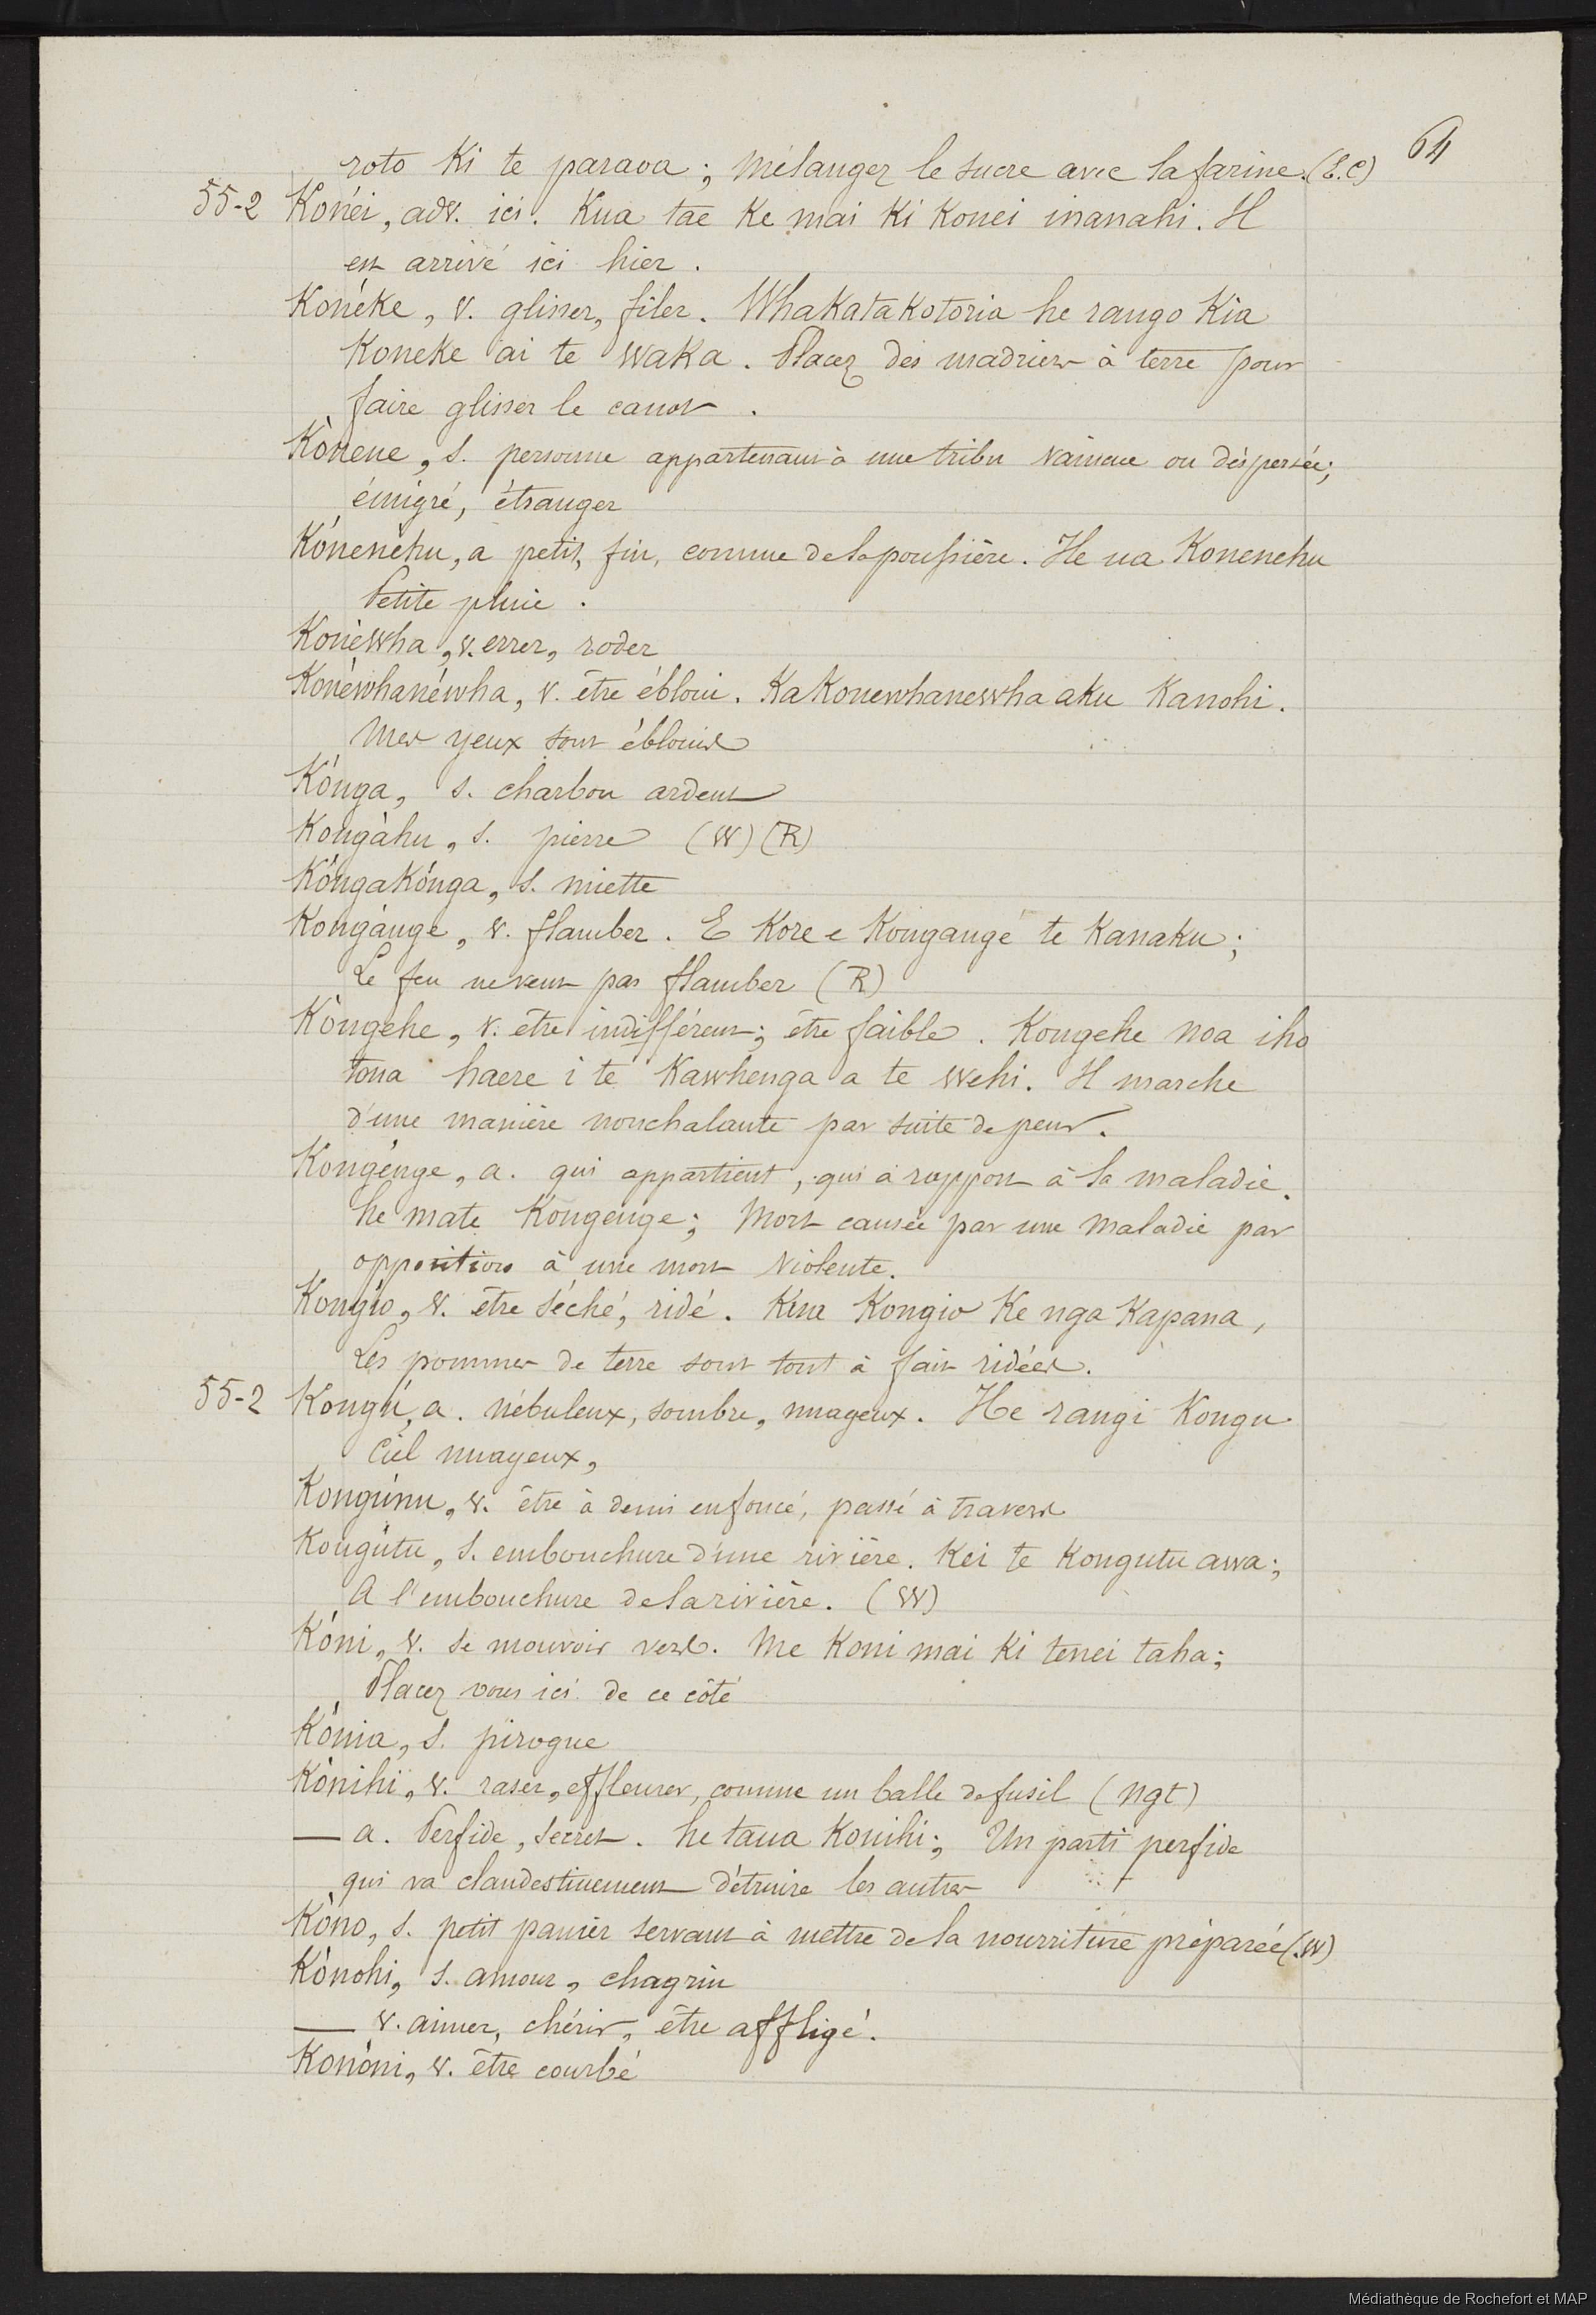 64
roto ki te paraoa; Mélangez le sucre avec la farine. (E.C)
55-2 Konéi, adv. ici. Kua tae ke mai ki konei inanahi. Il
est arrivé ici hier.
Konéke, v. glisser, filer. Whakatakotoria he rango kia
koneke ai te waka. Placez des madriers à terre pour
faire glisser le canot.
Kònene, s. personne appartenant à une tribu vaincue ou dispersée;
émigré, étranger
Kónenéhu, a petit, fin, comme de la poussière. He ua konenehu
Petite pluie.
Konéwha, v. errer, roder
Konéwhanéwha, v. être ébloui. Ka konewhanewha aku kanohi.
Mes yeux sont éblouis
Kónga, s. charbon ardent
Kongàhu, s. pierre (W) (R)
Kóngakónga, s. miette
Kongànge, v. flamber. E kore e kongange te kanaku;
Le feu ne veut pas flamber (R)
Kòngehe, v. être indifférent; être faible. Kongehe noa iho
tona haere i te kawhenga a te wehi. Il marche
d'une manière nonchalante par suite de peur.
Kongénge, a. qui appartient, qui a rapport à la maladie.
he mate kongenge; Mort causée par une maladie par
opposition à une mort violente.
Kongío, v. être séché, ridé. Kua kongio ke nga kapana,
Les pommes de terre sont tout à fait ridées.
55-2 Kongú, a. nébuleux, sombre, nuageux. He rangi kongu
Ciel nuageux,
Kongúnu, v. être à demi enfoncé, passé à travers
Kongútu, s. embouchure d'une rivière. Kei te kongutu awa;
A l'embouchure de la rivière. (W)
Kóni, v. se mouvoir vers. Me koni mai ki tenei taha;
Placez vous ici de ce côté
Kònia, s. pirogue
Kònihi, v. raser, effleurer, comme un balle de fusil (Ngt)
— a. Perfide, secret. he taua konihi; Un parti perfide
qui va clandestinement détruire les autres
Kòno, s. petit panier servant à mettre de la nourriture préparée (W)
Kònohi, s. amour, chagrin
— v. aimer, chérir, être affligé.
Konòni, v. être courbé
Médiathèque de Rochefort et MAP